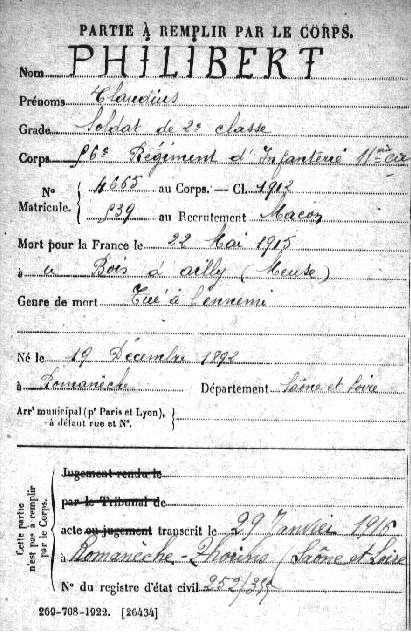 PARTIE À REMPLIR PAR LE CORPS.
Nom PHILIBERT
Prénoms Claudius
Grade Soldat de 2e classe
Corps 56e Régiment d'Infanterie 11me Cie
Nº Matricule. { 4665 au Corps. — Cl. 1912
939 au Recrutement Macon
Mort pour la France le 22 Mai 1915
à u Bois d'ailly (Meuse)
Genre de mort Tué à l'ennemi
Né le 19 Décembre 1892
à Romanèche Département Saône et Loire
Arrt municipal (pr Paris et Lyon), à défaut rue et Nº. }
Cette partie n'est pas à remplir par le Corps.
Jugement rendu le
par le Tribunal de
acte ou jugement transcrit le 29 Janvier 1916
à Romanèche-Thorins (Saône et Loire
Nº du registre d'état civil 252/
269-708-1922. [26434]